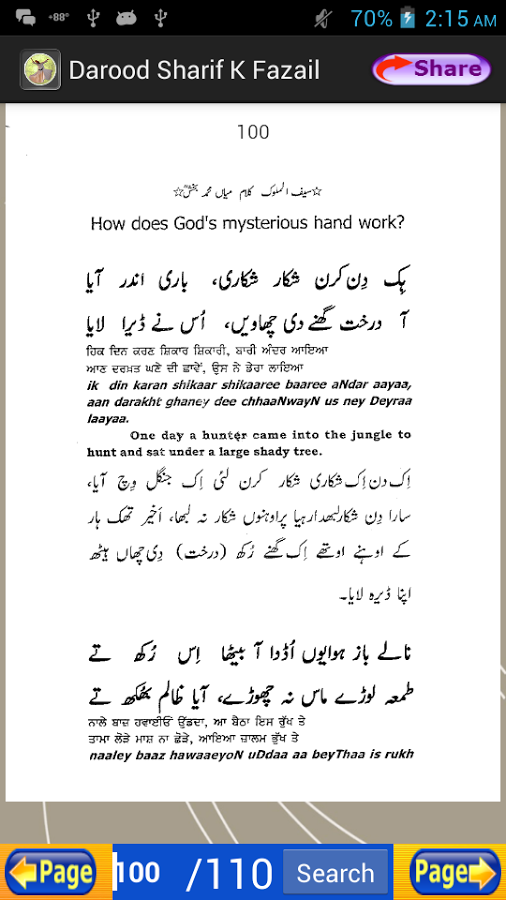 +88°
70%
2:15 AM
Darood Sharif K Fazail
Share
100
☆سیف الملوک کلام میاں محمد بخشؒ☆
How does God's mysterious hand work?
ہِک دِن کرن شکار شکاری، باری اندر آیا
آ درخت گھنے دی چھاویں، اُس نے ڈیرا لایا
ਹਿਕ ਦਿਨ ਕਰਣ ਸ਼ਿਕਾਰ ਸ਼ਿਕਾਰੀ, ਬਾਰੀ ਅੰਦਰ ਆਇਆ
ਆਣ ਦਰਖ਼ਤ ਘਣੇ ਦੀ ਛਾਵੇਂ, ਉਸ ਨੇ ਡੇਰਾ ਲਾਇਆ
ik din karan shikaar shikaaree baaree aNdar aayaa,
aan darakht ghaney dee chhaaNwayN us ney Deyraa
laayaa.
One day a hunter came into the jungle to
hunt and sat under a large shady tree.
اِک دن اِک شکاری شکار کرن لئی اِک جنگل وِچ آیا،
سارا دِن شکار لبھدا رہیا پر اوہنوں شکار نہ لبھا، اَخیر تھک ہار
کے اوہنے اوتھے اِک گھنے رُکھ (درخت) دِی چھاں ہیٹھ
اپنا ڈیرہ لایا۔
نالے باز ہوایوں اُڈدا آ بیٹھا اِس رُکھ تے
طمعہ لوڑے ماس نہ چھوڑے، آیا ظالم بھُکھ تے
ਨਾਲੇ ਬਾਜ਼ ਹਵਾਈਓਂ ਉਡਦਾ, ਆ ਬੈਠਾ ਇਸ ਰੁੱਖ ਤੇ
ਤਾਮਾ ਲੋੜੇ ਮਾਸ਼ ਨਾ ਛੋੜੇ, ਆਇਆ ਜ਼ਾਲਮ ਭੁੱਖ ਤੇ
naaley baaz hawaaeyoN uDdaa aa beyThaa is rukh
Page
100
/110
Search
Page